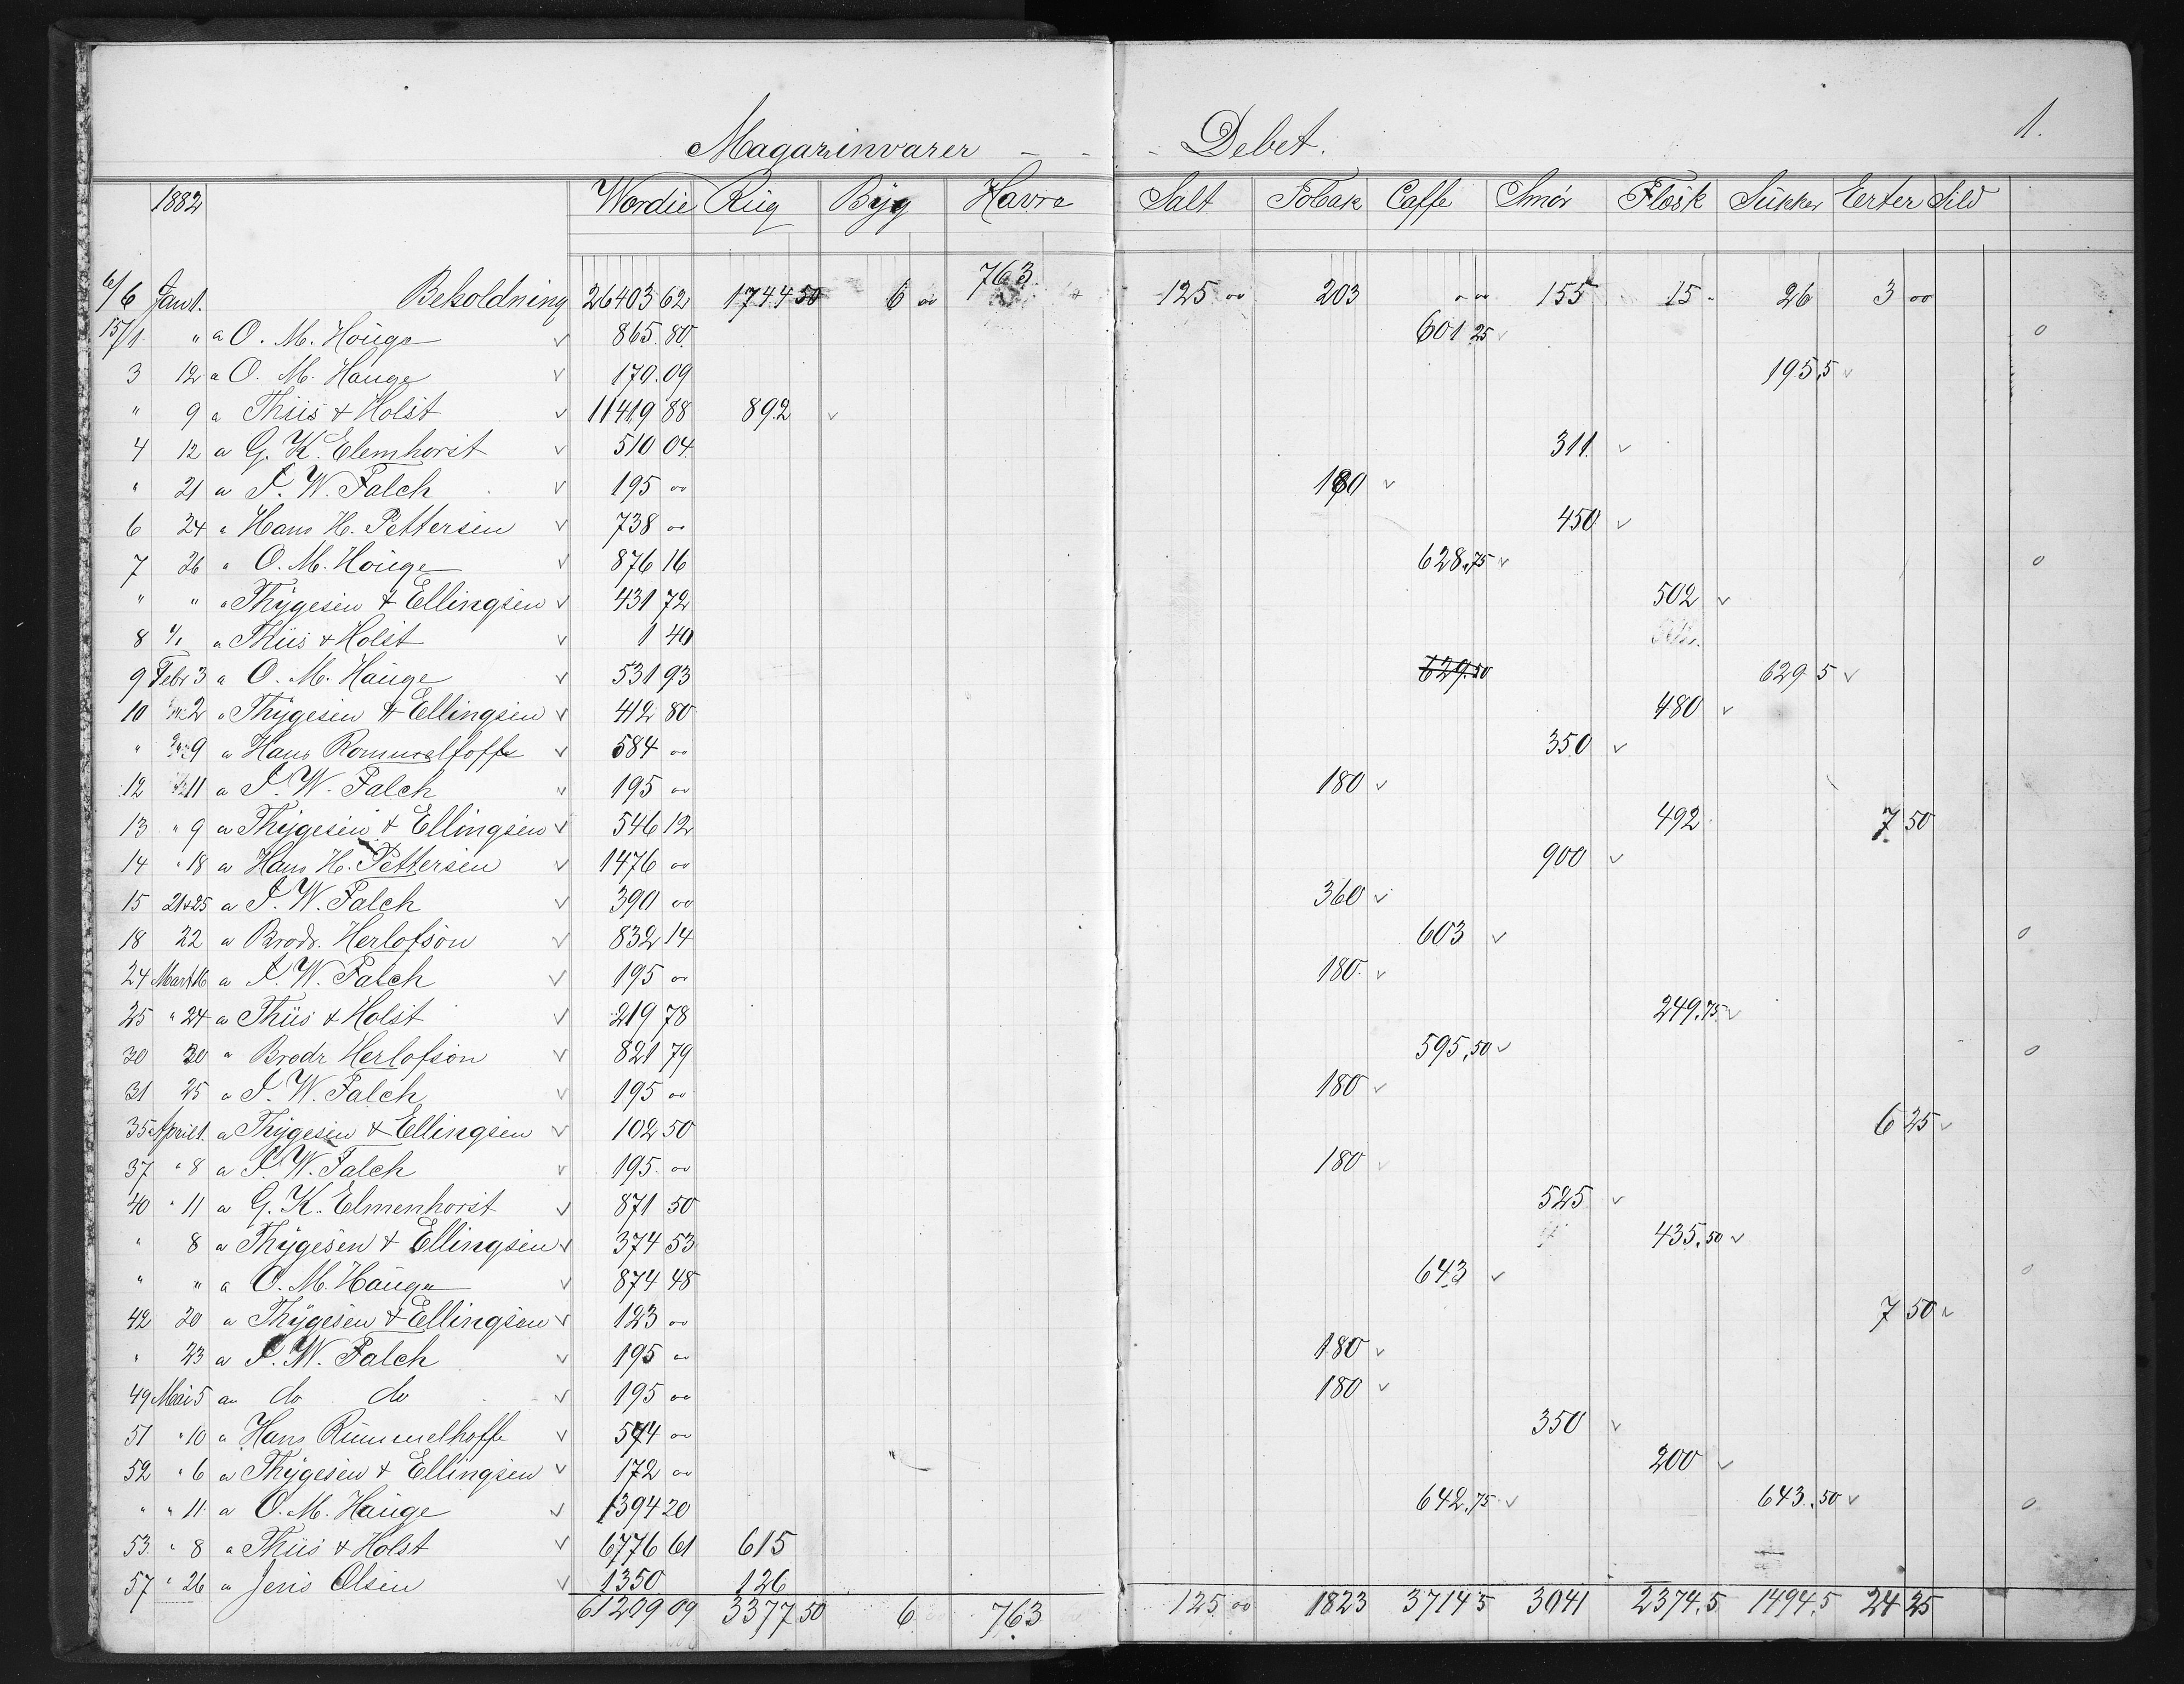 Magazinvarer - - - Debet. 1.
1882 Wördie Rüg Byg Havre Salt Tobak Caffe Smör Flösk Sükker Erter Sild
6/6 Jan 1. Beholdning 26403 62 1744 50 6 00 763 125 00 203 " " 155 15 - 26 3 00
15/1 " a O. M. Houge v 865. 80. 601 25 v 0
3 12 a O. M. Hauge v 170. 09 195,5 v
" 9 a Thiis & Holst v 11419 88 892 v
4 12 a G. K. Elemhorst v 510 04 311. v
" 21 a I. W. Falch v 195 00 180 v
6 24 a Hans H. Pettersen v 738 00 450 v
7 26 a O. M. Houge v 876 16 628,75 v 0
" " a Thygesen & Ellingsen v 431 72 502 v
8 " a Thiis & Holst v 1 40
9 Febr 3 a O. M. Hauge v 531 93 629.50 629 5 v
10 2 a Thygesen & Ellingsen v 412 80 480 v
" 9 a Hans Rommelhoffe v 584 00 350 v
12 11 a I. W. Falch v 195 00 180 v
13 " 9 a Thygesen & Ellingsen v 546 12 492 7 50
14 " 18 a Hans H. Pettersen v 1476 00 900 v
15 21&25 a I. W. Falch v 390 00 360 v
18 22 a Brodr. Herlofson v 832 14 603 v 0
24 Mart 16 a I. W. Falch v 195 00 180. v
25 " 24 a Thiis & Holst v 219 78 249,75 v
30 30 a Brodr Herlofson v 821 79 595,50 v 0
31 25 a I. W. Falch v 195 00 180 v
35 April 1. a Thygesen & Ellingsen v 102 50 6 25 v
37 " 8 a I. W. Falch v 195. 00 180 v
40 " 11 a G. K. Elmenhorst v 871 50 525 v
" 8 a Thygesen & Ellingsen v 374 53 435,50 v
" " a O. M. Hauge v 874 48 643 v 0
42 20 a Thygesen & Ellingsen v 123 00 7 50 v
" 23 a I. W. Falch v 195 00 180 v
49 Mai 5 an do do v 195 00 180 v
51 " 10 a Hans Rümmelhoffe v 574 00 350 v
52 " 6 a Thygesen & Ellingsen v 172 00 200 v
" " 11 a O. M. Hauge v 1394 20 642,75 v 643,50 v 0
53 " 8 a Thiis & Holst v 6776 61 615
57 " 26 a Jens Olsen v 1350 126
61209 09 3377 50 6 763 125 00 1823 3714 5 3041 2374,5 1494,5 24 25